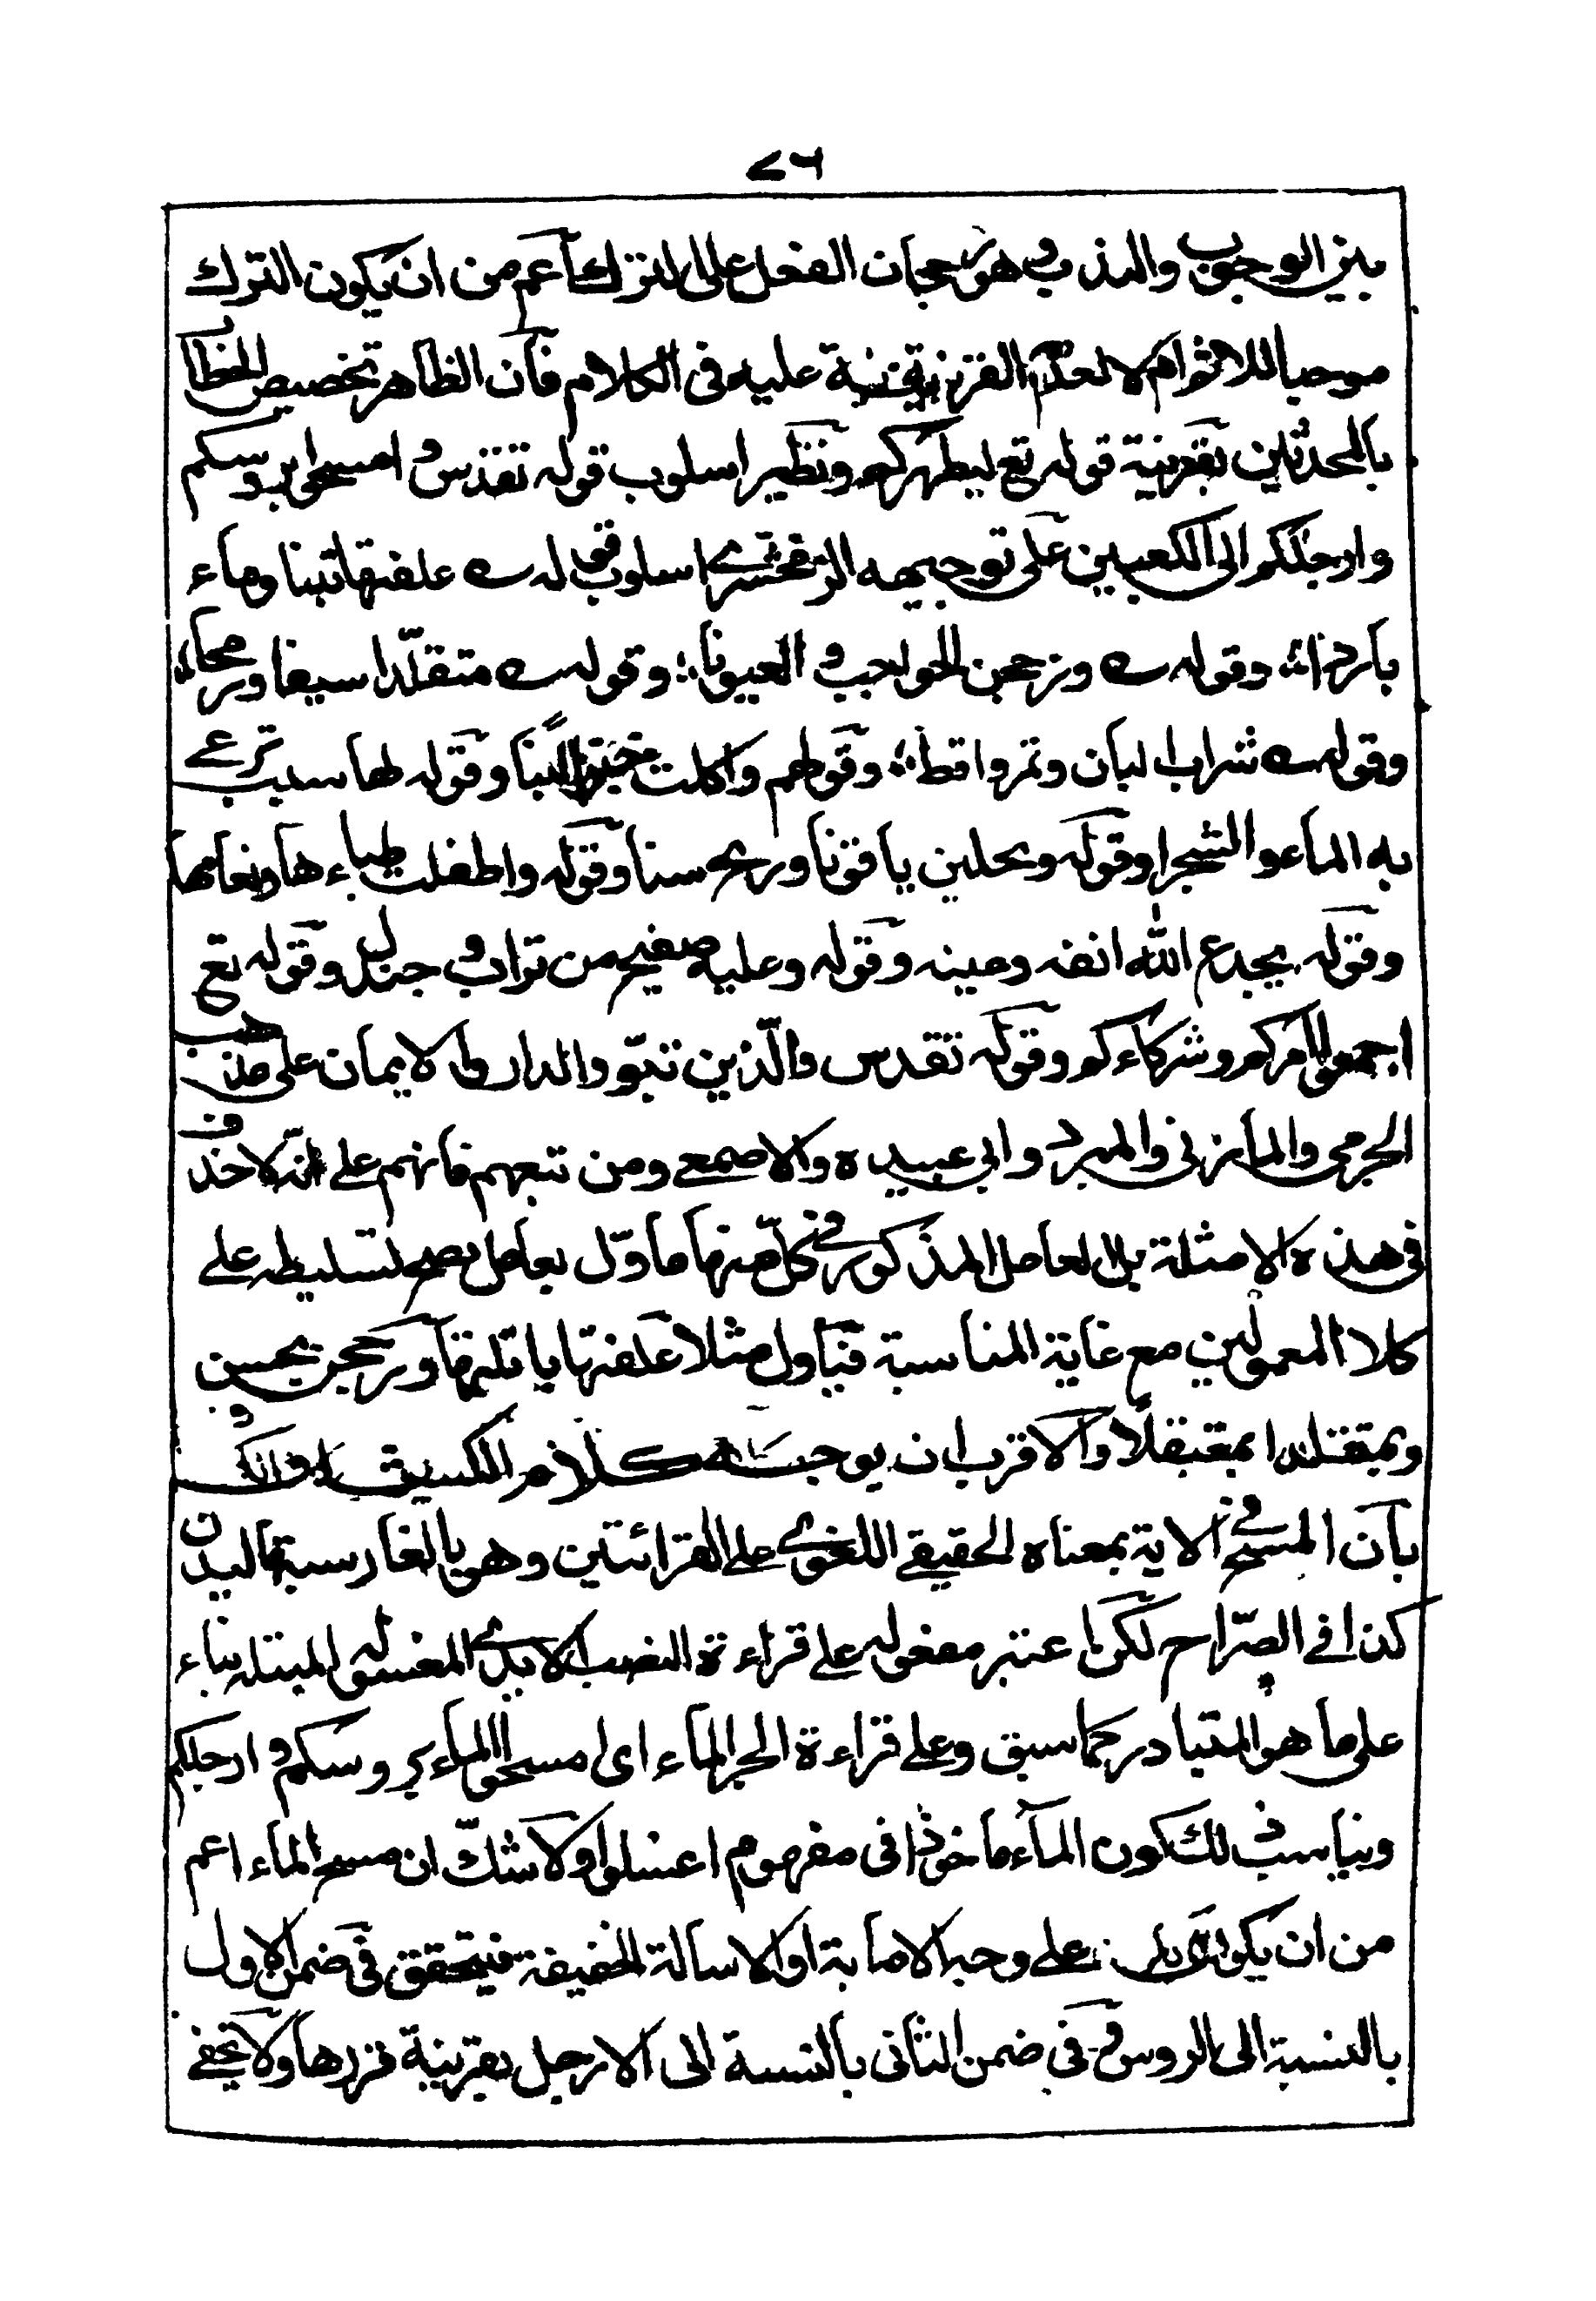 ٧٦
بين الوجوب والندب وهو رجحان الفعل على الترك اعم من ان يكون الترك
موجبا للاثم ام لا لعدم القرينة عليه فى الكلام فان الظاهر تخصيص الخطاب
بالمحدثين بقرينة قوله تع ليطهركم ونظير اسلوب قوله تقدس وامسحوا بروسكم
وارجلكم الى الكعبين على توجيهه الزمخشرى اسلوب قوله علفتها تبنا وماء
باردا وقوله وزججن الحواجب والعيونا وقوله متقلدا سيفا ورمحا
وقوله شراب البان وتمر واقط وقولهم واكلت خبزا ولبنا وقوله لها سبب ترعى
به الماء والشجرا وقوله ويحلين ياقوتا وريح سنا وقوله واطفلت ظباءها ونعامها
وقوله يجدع الله انفه وعينه وقوله وعليه صفيح من تراب وجندل وقوله تع
اجمعوا امركم وشركاءكم وقوله تقدس والّذين تبوّؤا الدار والايمان على مذهب
الجرمى والمازنى والمبرد وابى عبيده والاصمعى ومن تبعهم فانهم على انه لا حذف
فى هذه الامثلة بل العامل المذكور فى كل منها ماوّل بعامل يصح تسليطه على
كلا المعمولين مع غاية المناسبة فيأول مثلا علفتها بانلتها وزججن بحسن
ومتقلدا والاقرب ان يوجه كلام
بان المسح فى الاية بمعناه الحقيقى اللغوى على القرائتين وهو بالفارسية ماليدن
كذا فى الصّراح لكن اعتبر مفعوله على قراءة النصب الايدى المغسوله المبتله بناء
على ما هو المتبادر كما سبق وعلى قراءة الجر الماء اى امسحوا الماء بروسكم وارجلكم
ويناسب ذلك كون المآء ماخوذا فى مفهوم اغسلوا ولا شكّ ان مسح الماء اعم
من ان يكون على وجه الاصابة او الاسالة الخفيفة فيتحقق فى ضمن الاول
بالنسبة الى الروس وفى ضمن الثانى بالنسبة الى الارجل بقرينة ولا يخفى